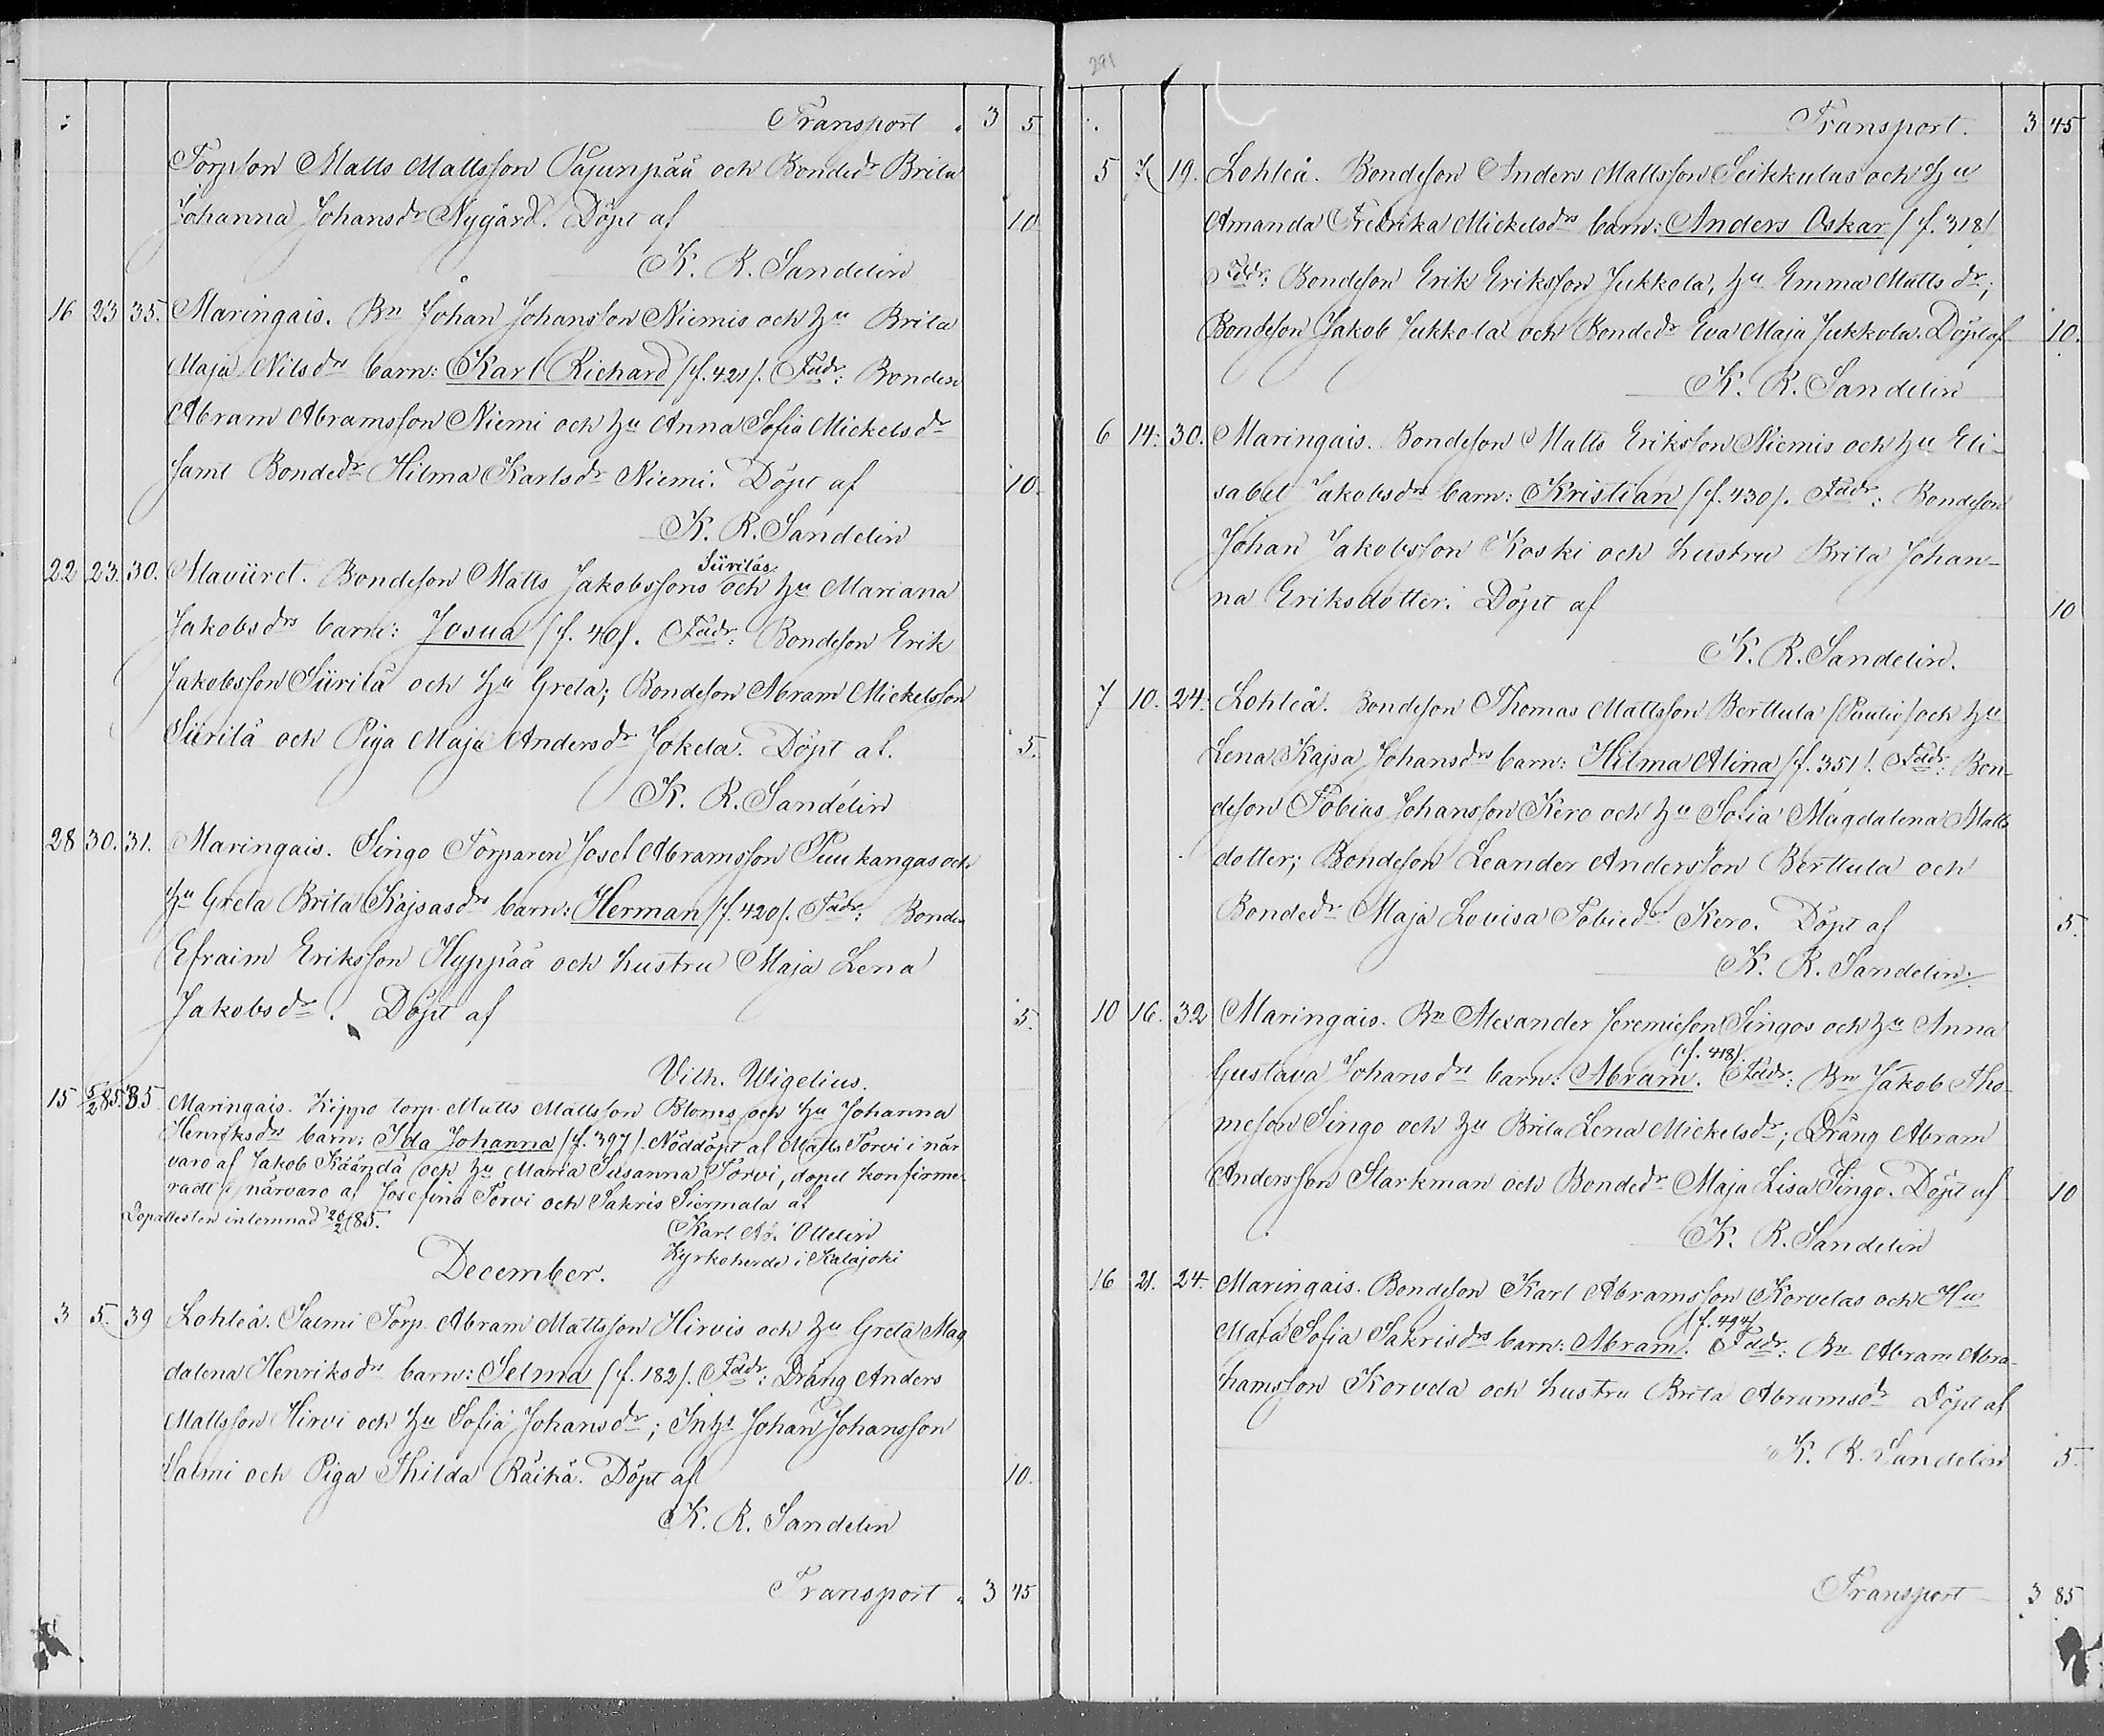 Transport . 3 5
Torpson Matts Mattsson Pajunpää och Bondedr Brita
Johanna Johansdr Nygård. Döpt af 10
K. R. Sandelin
16 23 35. Maringais. Bn Johan Johansson Niemis och hu Brita
Maja Nilsdrs barn: Karl Richard /f. 421/. Faddr: Bonden
Abram Abramsson Niemi och hu Anna Sofia Mickelsdr
samt Bondedr Hilma Karlsdr Niemi. Döpt af 10.
K. R. Sandelin
Siirilas
22 23 30. Maviiret. Bondeson Matts Jakobssons och hu Mariana
Jakobsdrs barn: Josua /f. 40/. Faddr: Bondeson Erik
Jakobsson Siirilä och hu Greta; Bondeson Abram Mickelsson
Siirilä och Piga Maja Andersdr Jokela. Döpt af. 5.
K. R. Sandelin
28 30. 31. Maringais. Singo Torparen Josef Abramsson Puukangas och
hu Greta Brita Kajsasdrs barn: Herman /f. 420/. Faddr: Bonden
Efraim Eriksson Hyppää och hustru Maja Lena
Jakobsdr. Döpt af 5.
Vilh. Wigelius.
15 5/2 85. 35 Maringais. Kippo torp. Matts Mattsson Bloms och hu Johanna
Henriksdrs barn: Ida Johanna /f. 397/. Nöddöpt af Matts Torvi i när
varo af Jakob Käändä och hu Maria Susanna Torvi, dopet konfirme-
radt i närvaro af Josefina Torvi och Sakris Siermala af
Dopattesten inlemnad 26/2 85.
Karl Ad. Ottelin
Kyrkoherde i Kalajoki
December.
3 5. 39 Lohteå. Salmi Torp. Abram Mattsson Hirvis och hu Greta Mag
dalena Henriksdrs barn: Selma /f. 182/. Faddr: Dräng Anders
Mattsson Hirvi och hu Sofia Johansdr; Inhs Johan Johansson
Salmi och Piga Thilda Räihä. Döpt af 10.
K. R. Sandelin
Transport . 3 45
291
Transport. 3 45
5 7 19. Lohteå. Bondeson Anders Mattsson Seikkulas och hu
Amanda Fredrika Mickelsdrs barn: Anders Oskar /f. 318/
Faddr: Bondeson Erik Eriksson Jukkola, hu Emma Mattsdr;
Bondeson Jakob Jukkola och Bondedr Eva Maja Jukkola. Döpt af 10.
K. R. Sandelin
6 14. 30. Maringais. Bondeson Matts Eriksson Niemis och hu Eli-
sabet Jakobsdrs barn: Kristian /f. 430/. Faddr: Bondeson
Johan Jakobsson Koski och hustru Brita Johan-
na Eriksdotter. Döpt af 10
K. R. Sandelin.
7 10. 24. Lohteå. Bondeson Thomas Mattsson Berttula /Paulio/ och hu
Lena Kajsa Johansdrs barn: Hilma Alina /f. 351/. Faddr: Bon-
deson Tobias Johansson Kero och hu Sofia Magdalena Matts
dotter; Bondeson Leander Andersson Berttula och
Bondedr Maja Lovisa Tobiedr Kero. Döpt af 5.
K. R. Sandelin.
10 16. 32 Maringais. Bn Alexander Jeremiesson Singos och hu Anna
/f. 418/.
Gustava Johansdrs barn: Abram. Faddr: Bn Jakob Tho-
meson Singo och hu Brita Lena Mickelsdr; Dräng Abram
Andersson Starkman och Bondedr Maja Lisa Singo. Döpt af 10
K. R. Sandelin
16 21. 24. Maringais. Bondeson Karl Abramsson Korvelas och Hu
/f. 494/
Maja Sofia Sakrisdrs barn: Abram. Faddr: Bn Abram Abra-
hamsson Korvela och hustru Brita Abramsdr Döpt af
K. R. Sandelin 5.
Transport 3 85